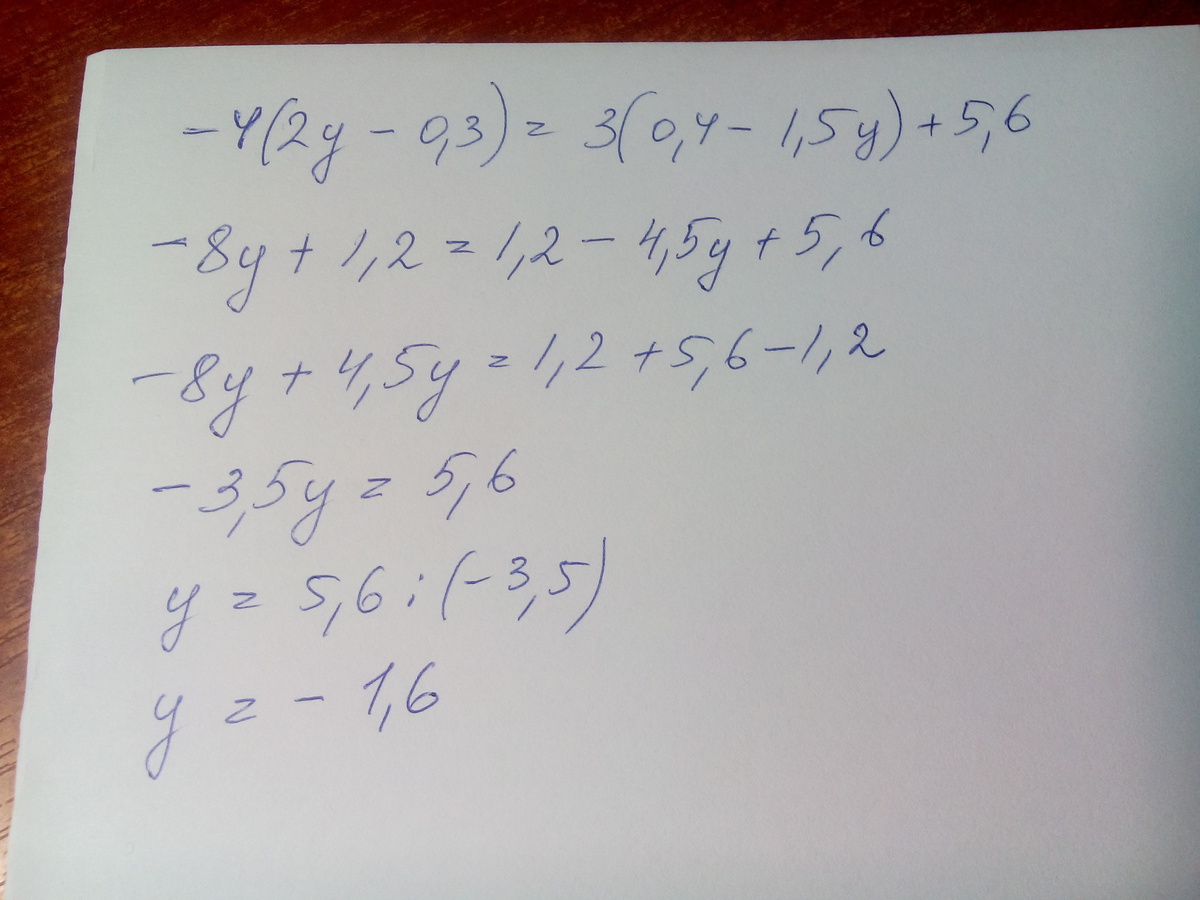 -4(2y - 0,3) = 3(0,4 - 1,5y) + 5,6
-8y + 1,2 = 1,2 - 4,5y + 5,6
-8y + 4,5y = 1,2 + 5,6 - 1,2
-3,5y = 5,6
y = 5,6 : (-3,5)
y = - 1,6